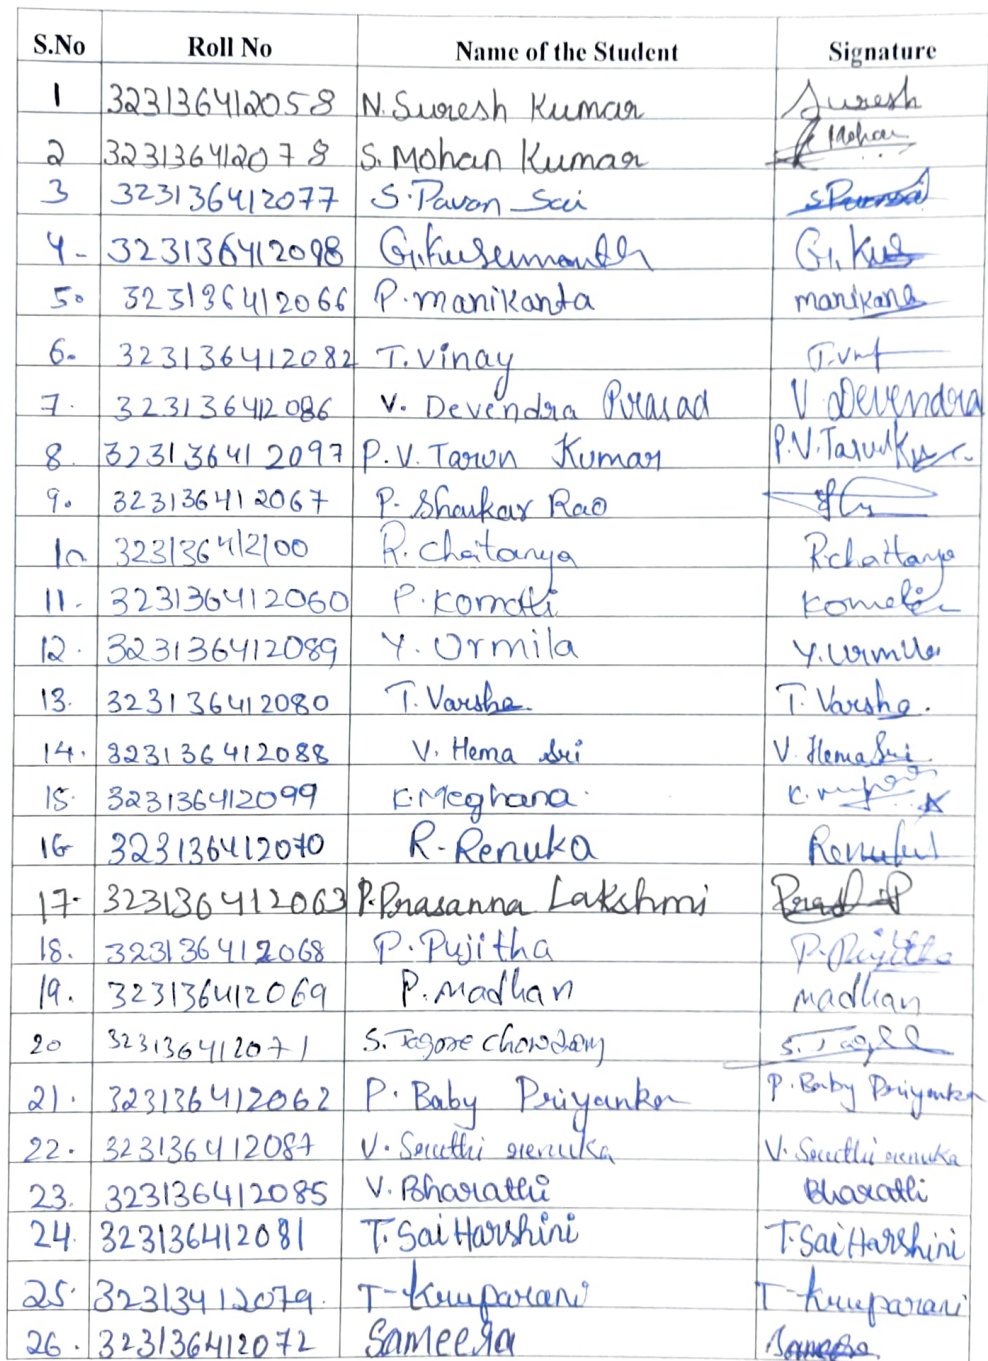 S.No Roll No Name of the Student Signature
1 323136412058 N. Suresh Kumar Suresh
2 323136412078 S. Mohan Kumar Mohan
3 323136412077 S. Pavan Sai
4- 323136412098 G. Kusumanth G. Kus
5. 323136412066 P. manikanta manikana
6. 323136412082 T. Vinay
7. 323136412086 V. Devendra Prasad V Devendra
8. 323136412097 P.V. Tarun Kumar P.V. Tarun
9. 323136412067 P. Shankar Rao
10 323136412100 R. chaitanya R chaitanya
11. 323136412060 P. Komali Komali
12. 323136412089 Y. Urmila Y. Urmila
13. 323136412080 T. Varsha T. Varsha.
14. 323136412088 V. Hema Sri V. Hema Sri
15. 323136412099 K. Meghana.
16 323136412070 R-Renuka
17. 323136412063 P. Prasanna Lakshmi
18. 323136412068 P. Pujitha P. Pujitha
19. 323136412069 P. Madhan madhan
20 323136412071 S. Tagore Chowdary
21. 323136412062 P. Baby Priyanka P. Baby Priyanka
22. 323136412087 V. Sruthi renuka V. Sruthi renuka
23. 323136412085 V. Bharathi Bharathi
24. 323136412081 T. Sai Harshini T. Sai Harshini
25. 32313412079. T-Kruparani T-Kruparani
26. 323136412072 Sameera Sameera